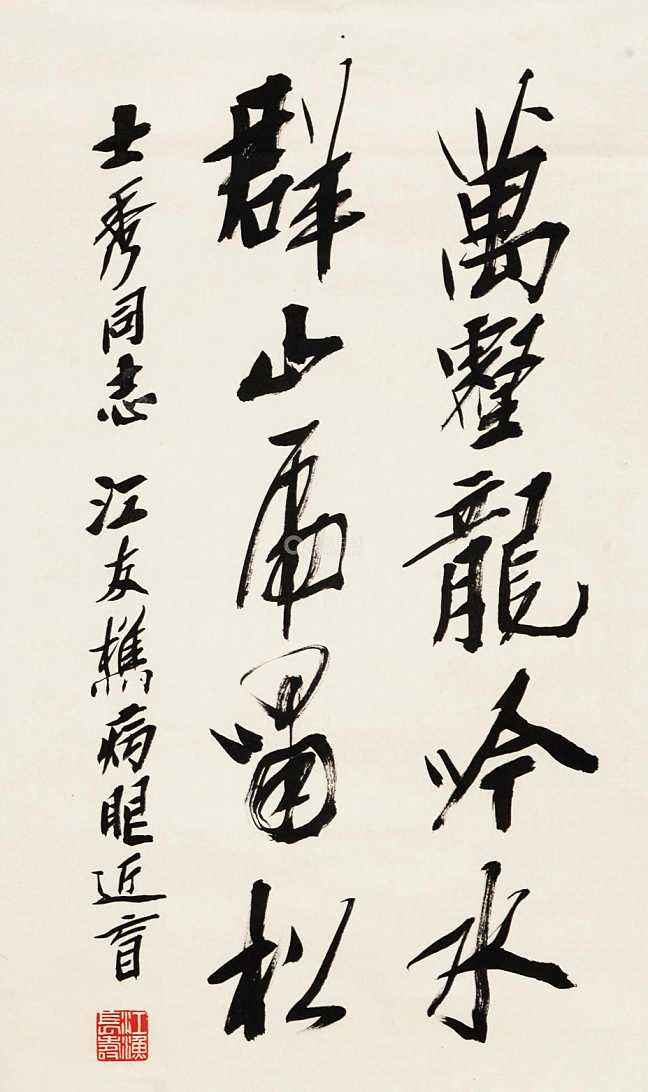 萬壑龍吟水
群山虎嘯松
士秀同志 江友樵病眼近盲
江漁長壽